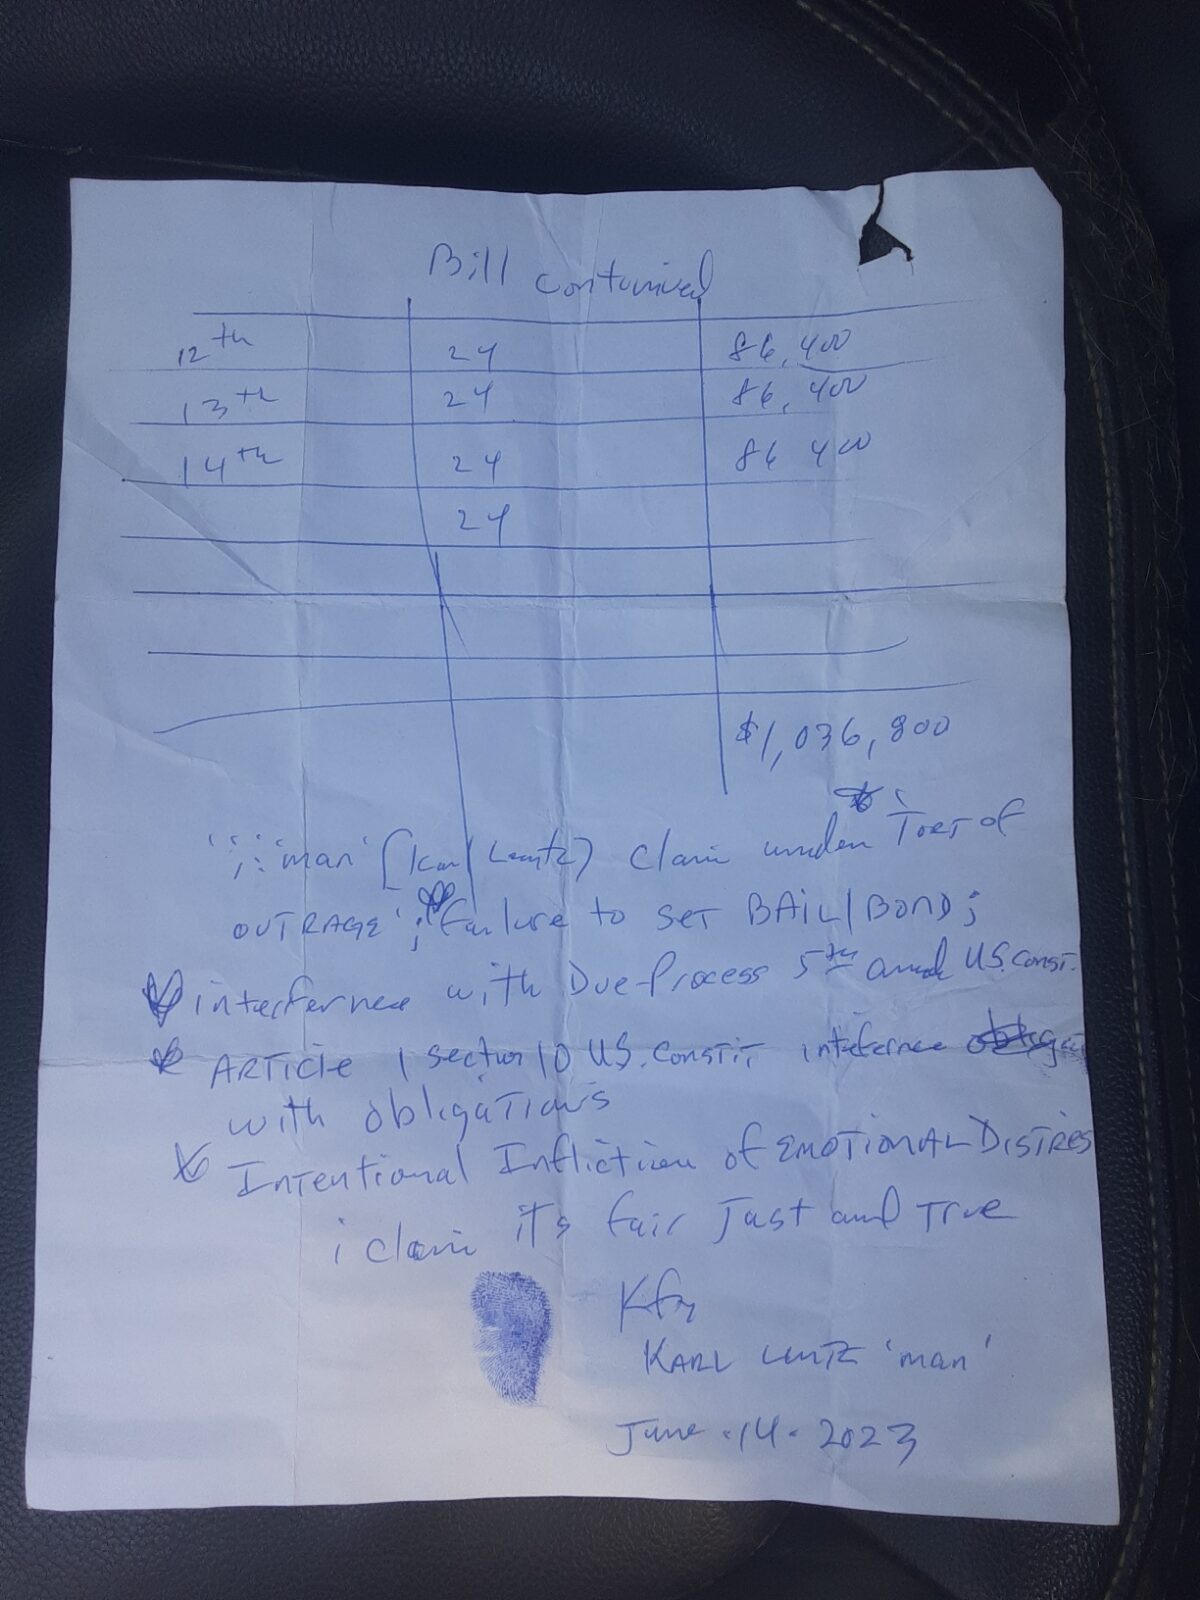 Bill contunived
12th 24 86,400
13th 24 86,400
14th 24 86 400
24
$1,036,800
'i; : 'man' (Karl Lentz) claim under 'Tort of
OUTRAGE'; failure to SET BAIL/BOND;
interfernce with Due-Process 5th amd U.S. Const.
ARTICle 1 section 10 US. Constit, inteference
with obligations
Intentional Infliction of EMOTIONAL DISTRES
i claim its fair Just and True
KARL Lentz 'man'
June .14. 2023